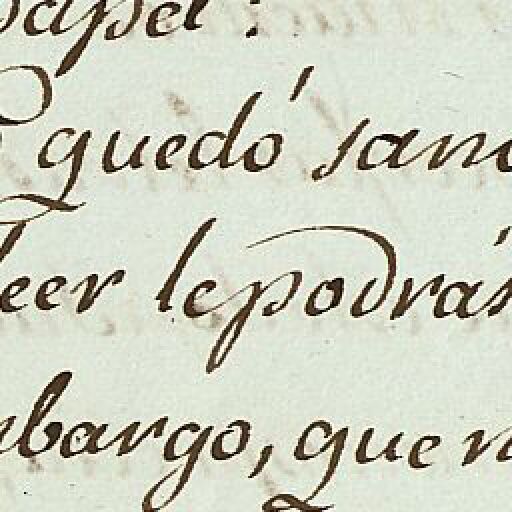 papel:
quedó sano
leer lepodrás
mbargo, que n